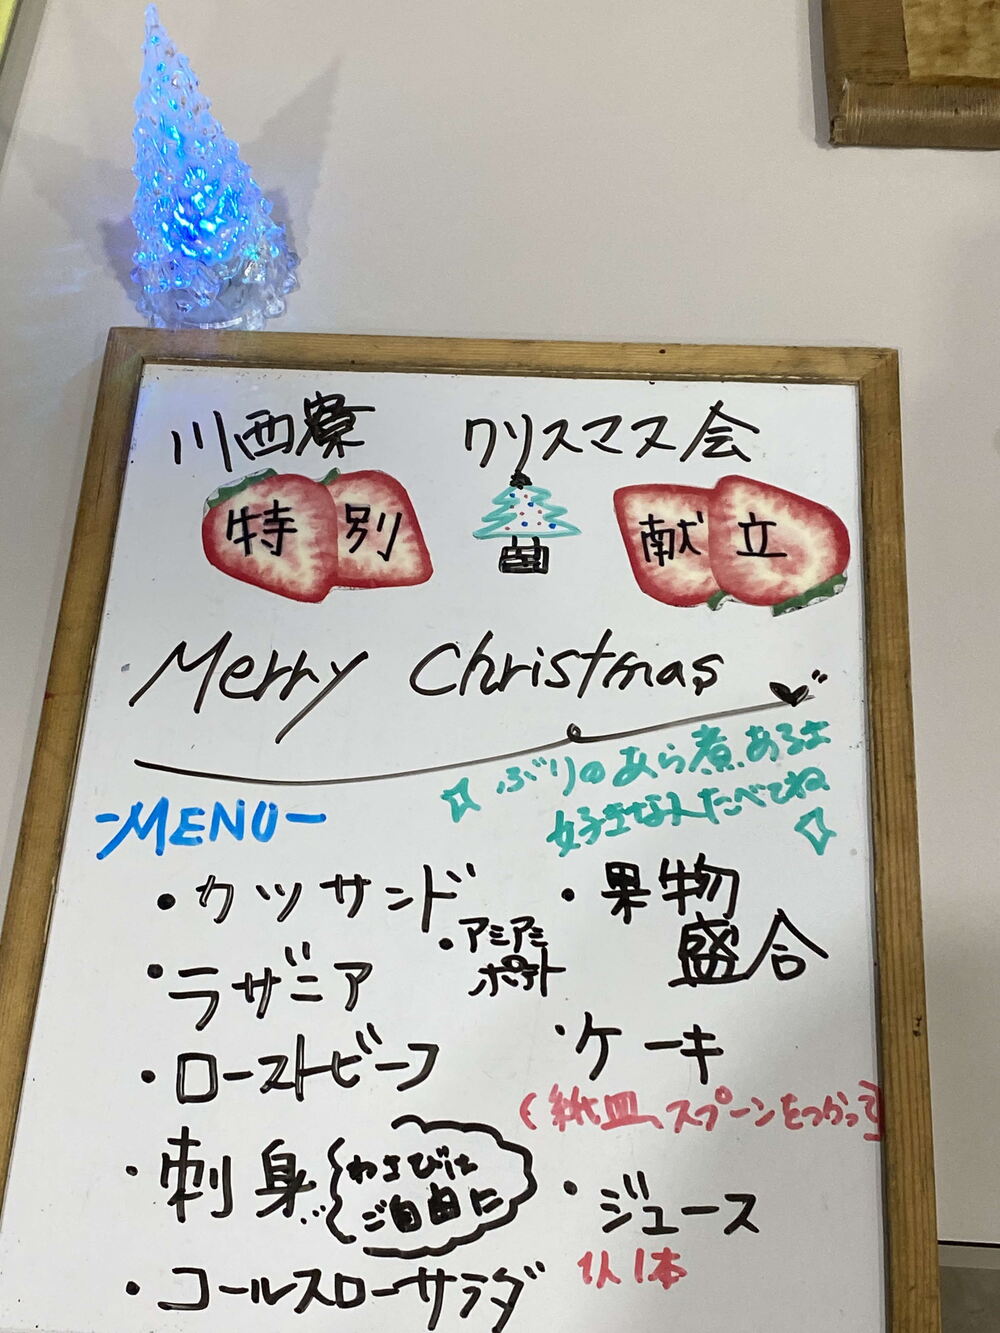 川西寮 クリスマス会
特別 献立
Merry Christmas
ぶりのあら煮あるよ
好きな人たべてね
-MENU-
・カツサンド
・アミアミ
ポテト
・ラザニア
・ローストビーフ
・刺身
わさびは
ご自由に
・コールスローサラダ
・果物
盛合
・ケーキ
(紙皿、スプーンをつかって)
・ジュース
1人1本